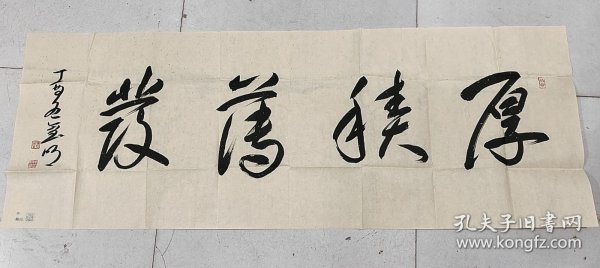 厚積薄發
丁酉冬
孔夫子旧书网
www.kongfz.com